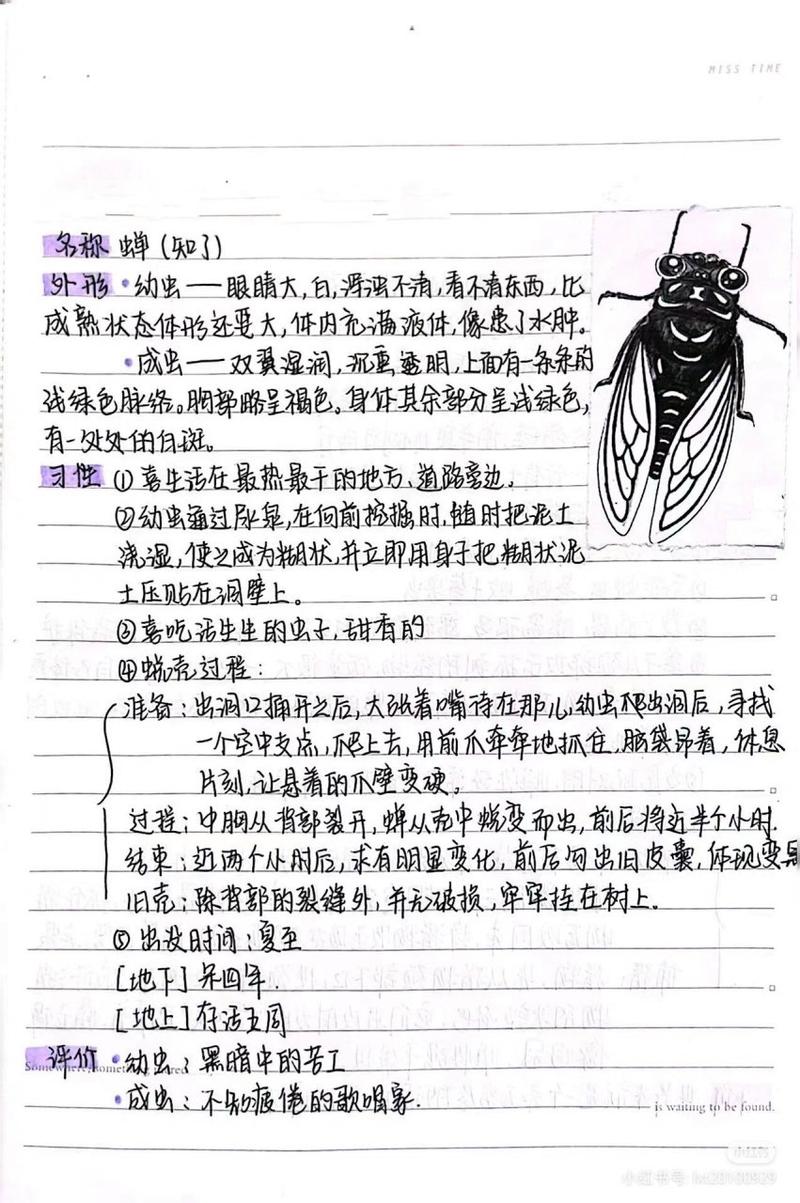 MISS TIME
名称 蝉(知了)
外形 •幼虫——眼睛大,白,浑浊不清,看不清东西,比
成熟状态体形还要大,体内充满液体,像患了水肿。
•成虫——双翼湿润,沉重透明,上面有一条条的
浅绿色脉络。胸部略呈褐色。身体其余部分呈浅绿色,
有一处处的白斑。
习性 ①喜生活在最热最干的地方,道路旁边.
②幼虫通过尿泉,在向前挖掘时,随时把泥土
浇湿,使之成为糊状,并立即用身子把糊状泥
土压贴在洞壁上。
③喜吃活生生的虫子,甜香的
④蜕壳过程:
准备:出洞口捅开之后,大张着嘴待在那儿,幼虫爬出洞后,寻找
一个空中支点,爬上去,用前爪牵牵地抓住,脑袋昂着,休息
片刻,让悬着的爪壁变硬。
过程:中胸从背部裂开,蝉从壳中蜕变而出,前后将近半个小时.
结束:近两个小时后,求有明显变化,前后勾出旧皮囊,体现变
旧克:除背部的裂缝外,并无破损,牢牢挂在树上。
⑤出没时间:夏至
[地下]第四年.
[地上]存活五周
评价 •幼虫:黑暗中的苦工
•成虫:不知疲倦的歌唱家.
is waiting to be found.
小红书
小红书号: